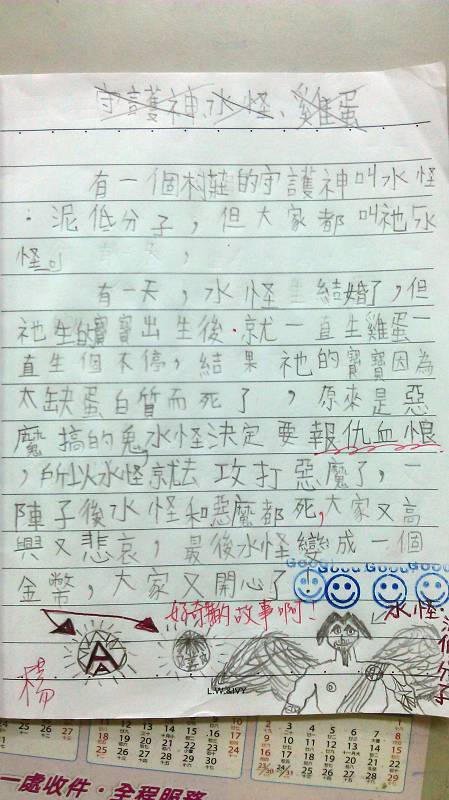 守護神、水怪、雞蛋
有一個村莊的守護神叫水怪
·泥低分子，但大家都叫祂「水
怪」
有一天，
有一天，水怪 結婚了，但
祂生的寶寶出生後，就一直生雞蛋一
直生個不停，結果祂的寶寶因為
太缺蛋白質而死了，原來是惡
魔搞的鬼，水怪決定要報仇血恨
，所以水怪就去攻打惡魔了，一
陣子後水怪和惡魔都死，大家又高
興又悲哀，最後水怪變成一個
金幣，大家又開心了
Good Good Good Good
好奇特的故事啊！
水怪
泥低分子
A
楊
L.W.&IVY
一處收件·全程服務